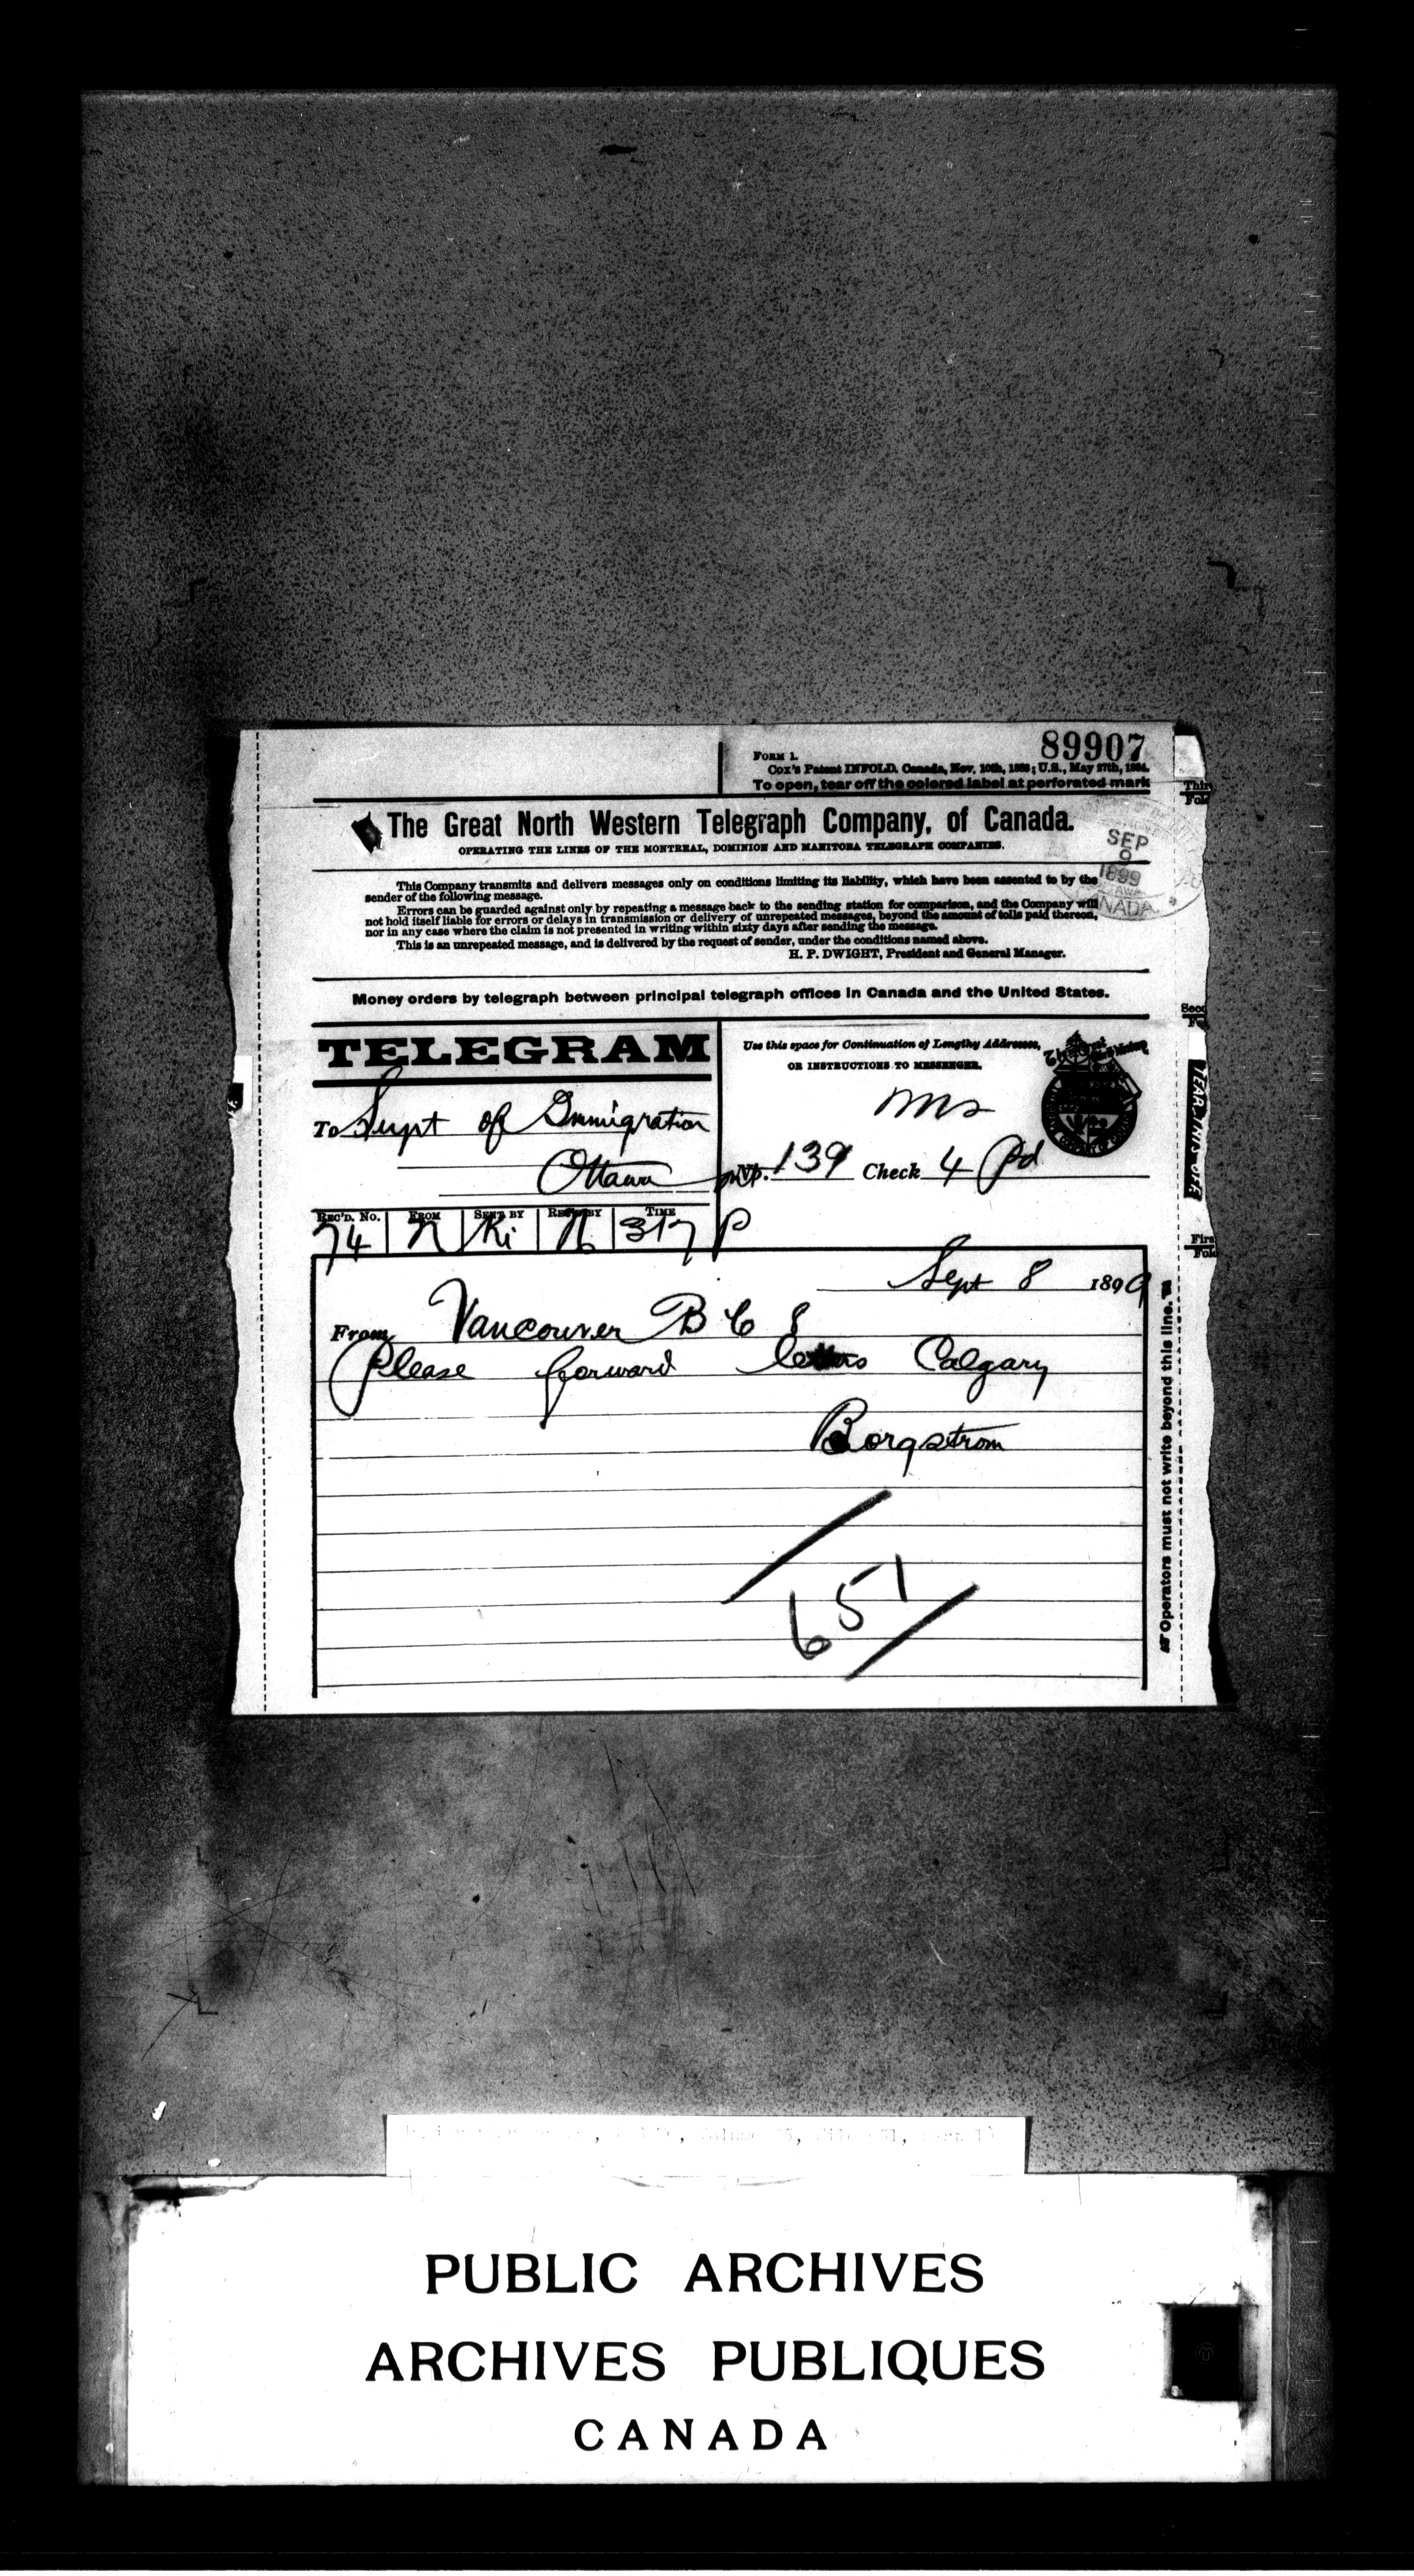 89907
FORM 1.
Cox's Patent INFOLD. Canada, Nov. 10th, 1886; U.S., May 27th, 1884.
To open, tear off the colored label at perforated mark
The Great North Western Telegraph Company, of Canada.
OPERATING THE LINES OF THE MONTREAL, DOMINION AND MANITOBA TELEGRAPH COMPANIES.
SEP
9
1899
CANADA
This Company transmits and delivers messages only on conditions limiting its liability, which have been assented to by the
sender of the following message.
Errors can be guarded against only by repeating a message back to the sending station for comparison, and the Company will
not hold itself liable for errors or delays in transmission or delivery of unrepeated messages, beyond the amount of tolls paid thereon,
nor in any case where the claim is not presented in writing within sixty days after sending the message.
This is an unrepeated message, and is delivered by the request of sender, under the conditions named above.
H. P. DWIGHT, President and General Manager.
Money orders by telegraph between principal telegraph offices in Canada and the United States.
TELEGRAM
Use this space for Continuation of Lengthy Addresses,
OR INSTRUCTIONS TO MESSENGER.
To Supt of Immigration
Ottawa
No. 139 Check 4 Pd
REC'D. No. FROM SENT BY REC'D BY TIME
74 N Ki 317 P
Sept 8 1899
From Vancouver B C 8
Please forward letters Calgary
Borgstrom
651
Third
Fold
Second
Fold
TEAR THIS OFF
First
Fold
Operators must not write beyond this line.
PUBLIC ARCHIVES
ARCHIVES PUBLIQUES
CANADA